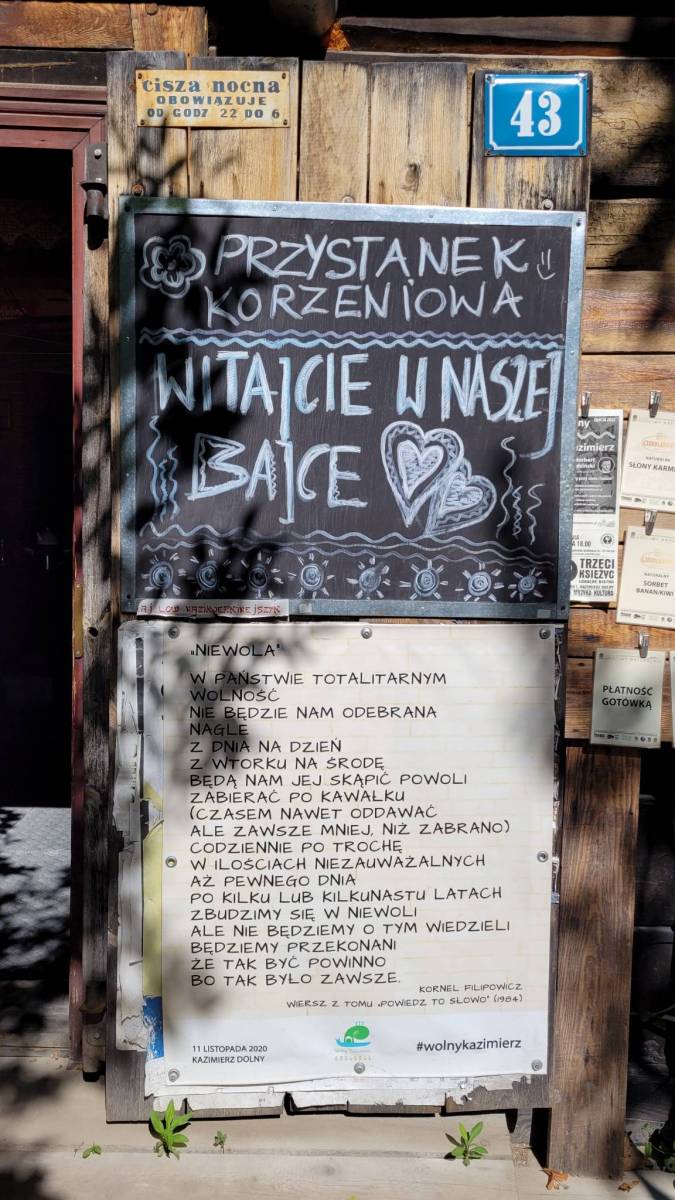 cisza nocna
OBOWIĄZUJE
OD GODZ 22 DO 6
43
PRZYSTANEK
KORZENIOWA
WITAJCIE W NASZEJ
BAJCE
"NIEWOLA"
W PAŃSTWIE TOTALITARNYM
WOLNOŚĆ
NIE BĘDZIE NAM ODEBRANA
NAGLE
Z DNIA NA DZIEŃ
Z WTORKU NA ŚRODĘ
BĘDĄ NAM JEJ SKĄPIĆ POWOLI
ZABIERAĆ PO KAWAŁKU
(CZASEM NAWET ODDAWAĆ
ALE ZAWSZE MNIEJ, NIŻ ZABRANO)
CODZIENNIE PO TROCHĘ
W ILOŚCIACH NIEZAUWAŻALNYCH
AŻ PEWNEGO DNIA
PO KILKU LUB KILKUNASTU LATACH
ZBUDZIMY SIĘ W NIEWOLI
ALE NIE BĘDZIEMY O TYM WIEDZIELI
BĘDZIEMY PRZEKONANI
ŻE TAK BYĆ POWINNO
BO TAK BYŁO ZAWSZE.
KORNEL FILIPOWICZ
WIERSZ Z TOMU „POWIEDZ TO SŁOWO" (1984)
11 LISTOPADA 2020
KAZIMIERZ DOLNY
#wolnykazimierz
NATURALNY
SŁONY KARM
NATURALNY
SORBET
BANAN/KIWI
TRZECI
KSIĘŻYC
PŁATNOŚĆ
GOTÓWKĄ